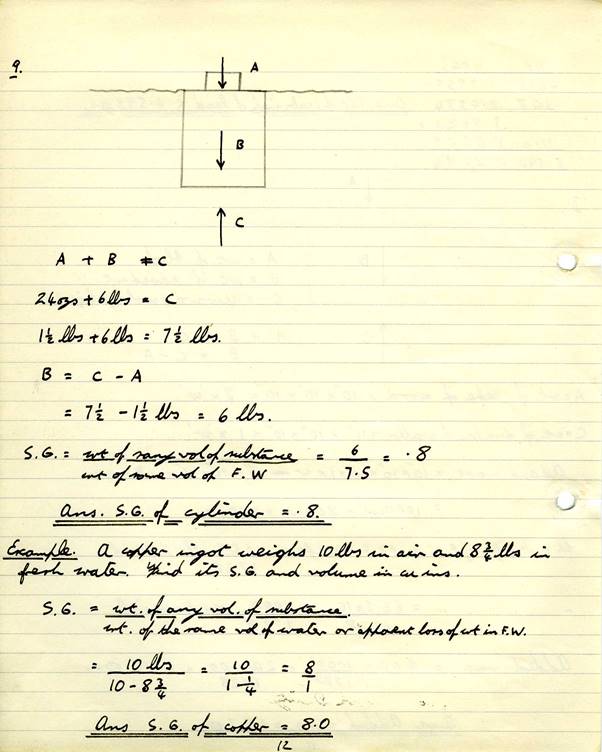 9.
A
B
C
A + B = C
24ozs + 6 lbs = C
1½ lbs + 6 lbs = 7½ lbs.
B = C - A
= 7½ - 1½ lbs = 6 lbs.
S.G. = wt of any vol of substance = 6 = .8
wt of same vol of F.W 7.5
Ans. S.G. of cylinder = .8.
Example. A copper ingot weighs 10 lbs in air and 8¾ lbs in
fresh water. Find its S.G. and volume in cu ins.
S.G. = wt. of any vol. of substance.
wt. of the same vol of water or apparent loss of wt in F.W.
= 10 lbs = 10 = 8
10 - 8¾ 1-¼ 1
Ans S.G. of copper = 8.0
12